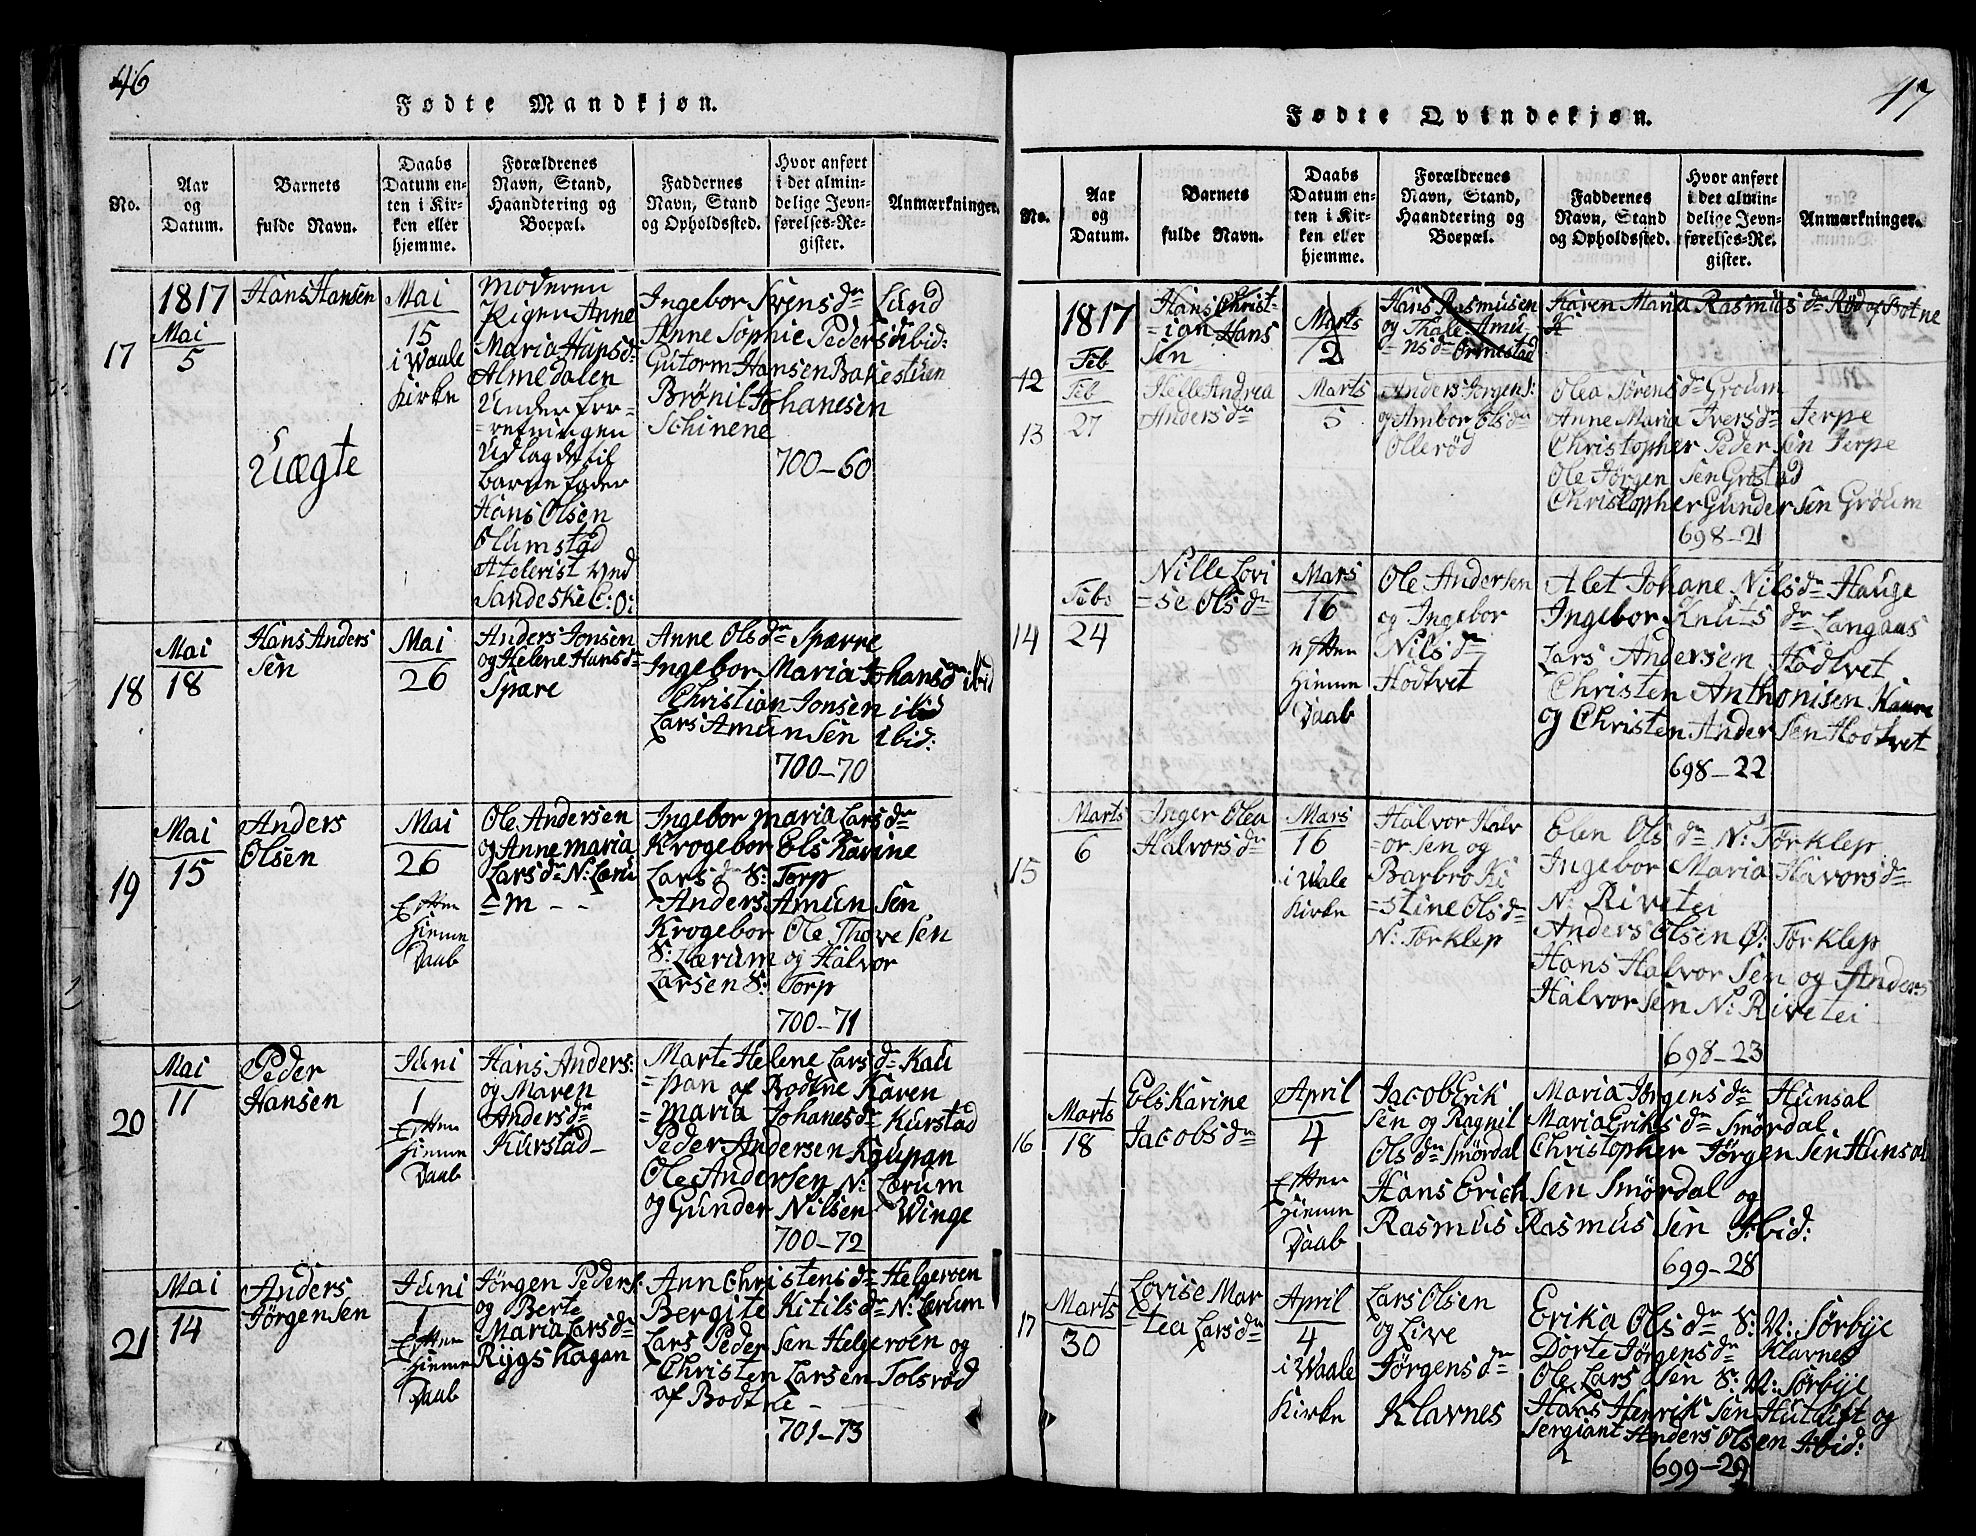 46
Fødte Mandkjøn.
No.
Aar
og
Datum.
Barnets
fulde Navn.
Daabs
Datum en-
ten i Kir-
ken eller
hjemme.
Forældrenes
Navn, Stand,
Haandtering og
Boepæl.
Faddernes
Navn, Stand
og Opholdssted.
Hvor anført
i det almin-
delige Jevn-
førelses-Re-
gister.
Anmærkninger.
17
1817
Mai
5
Hans Hansen
Uægte
Mai
15
i Waale
Kirke
Moderen
Pigen Anne
Maria Hansd:
Almedalen
Under for-
=retningen
Udlagde til
barne fader
Hans Olsen
Olumstad
Ingebor Svensdr Lund
Anne Sophie Peders ibid:
Gutorm Hansen Bakestuen
Brønil Johanesen
Schinene
700-60
18
Mai
18
Hans Anders
sen
Mai
26
Anders Jonsen
og Helene Hansdr
Spare
Anne Olsdr Spærre
Ingebor Maria Johansdr ibid
Christian Jonsen ibid
Lars Amunsen ibid:
700-70
19
Mai
15
Anders
Olsen
Mai
26
Efter
Hiemme
Daab
Ole Andersen
og Anne maria
Larsdr N: Læru
=m - -
Ingebor maria Larsdr
Krogebor Els Karine
Larsdr S: Torp
Anders Amunsen
Krogebor Ole Thovesen
S: Lærum og Halvor
Larsen S: Torp
700-71
20
Mai
11
Peder
Hansen
Juni
1
Efter
Hiemme
Daab
Hans Anders:
og Maren
Andersdr
Kurstad-
Marte Helene Larsdr Kau
=pan af Bodtne Karen
=maria Johanesdr Kurstad
Peder Andersen Kaupan
Ole Andersen N: Lærum
og Gunder Nilsen Winge
700-72
21
Mai
14
Anders
Jörgensen
Juni
1
Efter
Hiemme
Daab
Jörgen Peders:
og Berte
Maria Larsdr
Rygshagan
Ann Christensdr Helgeroen
Bergite Kitilsdr N: Lærum
Lars Pedersen Helgeroen og
Christen Larsen Tolsrød
af Bodtne -
701-73
47
Fødte Qvindekjøn.
No.
Aar
og
Datum.
Barnets
fulde Navn.
Daabs
Datum en-
ten i Kir-
ken eller
hjemme.
Forældrenes
Navn, Stand,
Haandtering og
Boepæl.
Faddernes
Navn, Stand
og Opholdssted.
Hvor anført
i det almin-
delige Jevn-
førelses-Re-
gister.
Anmærkninger.
12
1817
Feb
Hans Christ-
=ian Hans
sen
Marts
2
Hans Rasmusen
og Thale Amu-
=nsdr Ornestad
Karen Maria Rasmusdr Rød af Botne
13
Feb
27
Helle Andrea
Andersdr
Marts
5
Anders Jörgens:
og Ambor Olsdr
Ollerød
Olea Sörensdr Groum
Anne Maria Iversdr Jerpe
Christopher Pedersen Jerpe
Ole Jörgensen Gristad
Christopher Gundersen Gröum
698-21
14
Feb
24
Nille Lovi
=se Olsdr
Mars
16
efter
Hiemme
Daab
Ole Andersen
og Ingebor
Nilsdr
Hodtvet
Alet Johane Nilsdr Hauge
Ingebor Knutsdr Langaas
Lars Andersen Hodtvet
Christen Anthonisen Haure
og Christen Andersen Hodtvet
698-22
15
Marts
6
Inger Olea
Halvorsdr
Mars
16
i Wale
Kirke
Halvor Halv
=orsen og
Barbro Ki
=stine Olsdr
N: Torklep
Elen Olsdr N: Torklep
Ingebor Maria Havorsdr
N: Rivetei
Anders Olsen Ø: Torklep
Hans Halvorsen og Anders
Halvorsen N: Rivetei
698-23
16
Marts
18
Els Karine
Jacobsdr
April
4
Efter
Hiemme
Daab
Jacob Erik
sen og Ragnil
Olsdr Smördal
Maria Jörgensdr Hunsal
Maria Eriksdr Smördal
Christopher Jörgensen Hunsal
Hans Erichsen Smördal og
Rasmus Rasmussen Ibid:
699-28
17
Marts
30
Lovise Mar
=tea Larsdr
April
4
i Waale
Kirke
Lars Olsen
og Live
Jörgensdr
Klavnes
Erika Olsdr S: V: Sörbye
Dorte Jörgensdr Klavnes
Ole Larssen S: V: Sörbye
Hans Henriksen Hutvift og
Sergiant Anders Olsen Ibid:
699-29